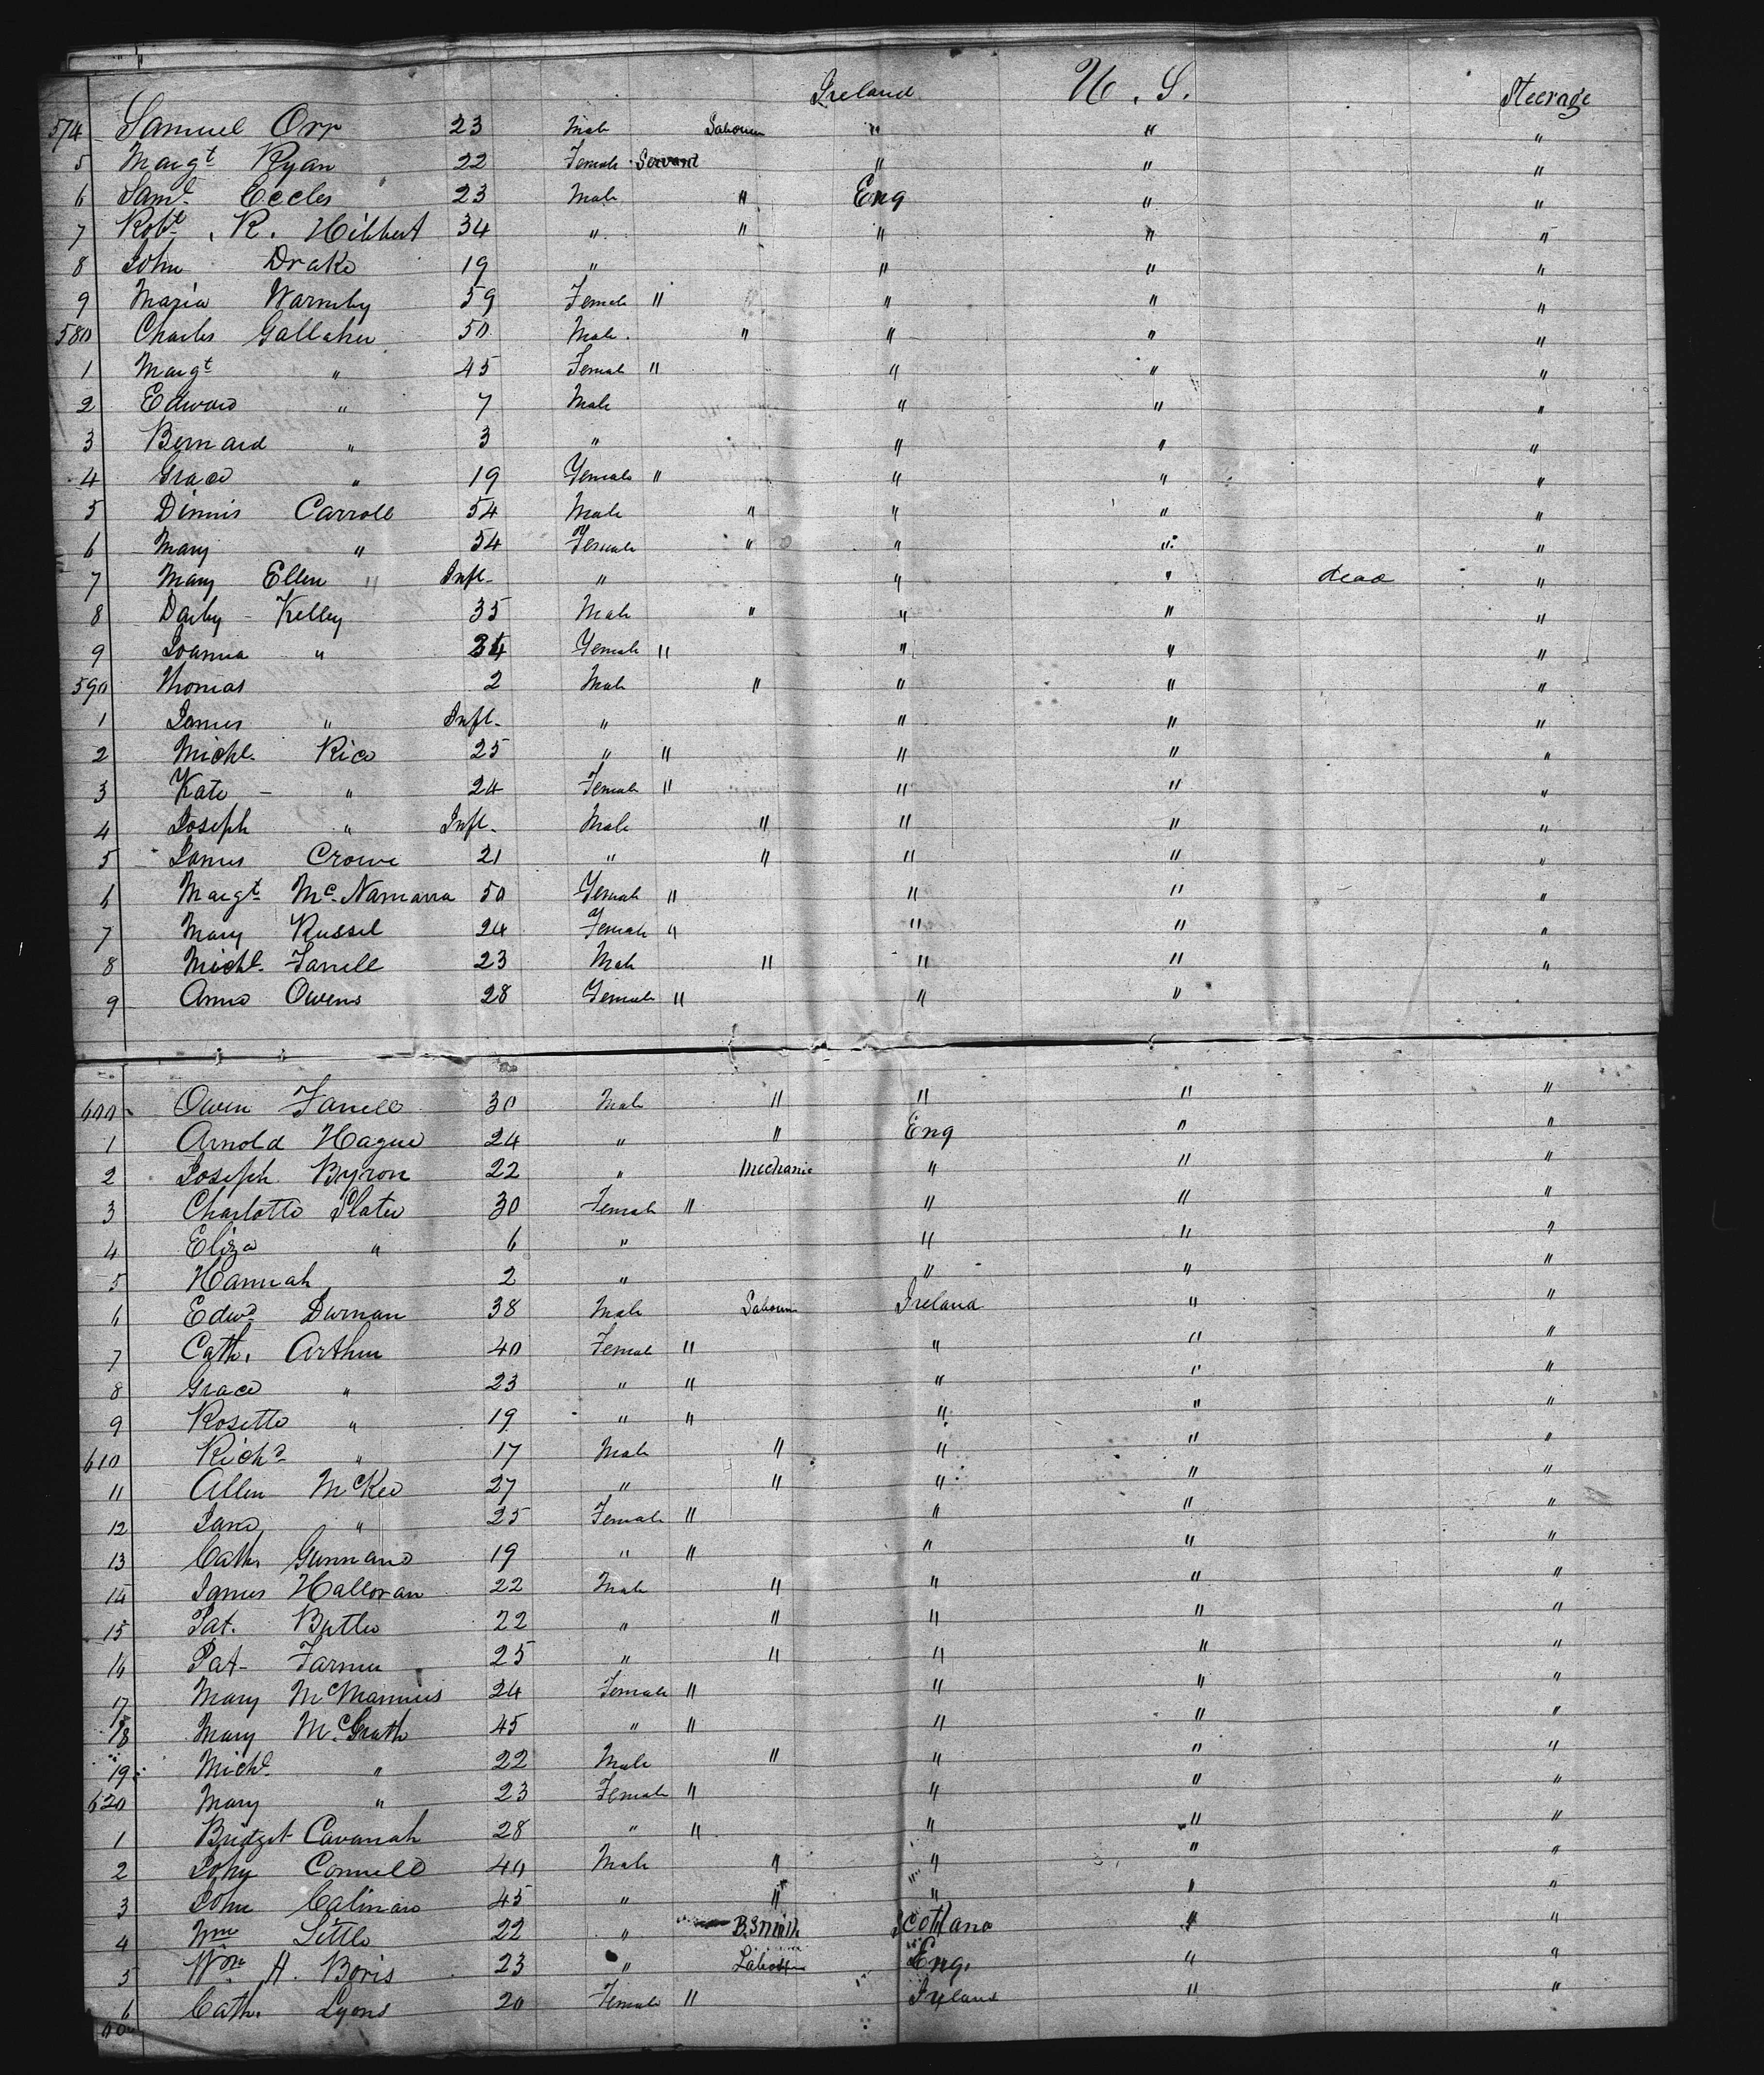 Ireland U. S. Steerage
574 Samuel Orr 23 Male Labourer " " "
5 Margt Ryan 22 Female Servant " " "
6 Saml Eccles 23 Male " Eng " "
7 Robt. R. Hibbert 34 " " " " "
8 John Drake 19 " " " "
9 Maria Warmby 59 Female " " " "
580 Charles Gallaher 50 Male. " " " "
1 Margt " 45 Female " " " "
2 Edward " 7 Male " " "
3 Bernard " 3 " " " "
4 Grace " 19 Female " " " "
5 Dinnis Carroll 54 Male " " " "
6 Mary " 54 Female " " " "
7 Mary Ellen " Inft. " " " dead "
8 Darby - Kelley 35 Male " " " "
9 Joanna " 34 Female " " " "
590 Thomas 2 Male " " " "
1 James " Inft. " " " "
2 Michl. Rice 25 " " " " "
3 Kate - " 24 Female " " " "
4 Joseph " Inft. Male " " " "
5 James Crowe 21 " " " " "
6 Margt McNamara 50 Female " " " "
7 Mary Russel 24 Female " " " "
8 Michl. Farrell 23 Male " " " "
9 Anne Owens 28 Female " " "
600 Owen Farrell 30 Male " " " "
1 Arnold Hague 24 " " Eng " "
2 Joseph Byron 22 " Mechanic " " "
3 Charlotte Slater 30 Female " " " "
4 Eliza " 6 " " " "
5 Hannah 2 " " " "
6 Edwd Durnan 38 Male Labourer Ireland " "
7 Cath. Arthur 40 Female " " " "
8 Grace " 23 " " " " "
9 Rosetta " 19 " " " " "
610 Richd " 17 Male " " " "
11 Allen McKee 27 " " " " "
12 Jane " 25 Female " " " "
13 Cath. 19 " " " " "
14 James Halloran 22 Male " " " "
15 Pat. Butler 22 " " " " "
16 Pat- Farmer 25 " " " " "
17 Mary McMannus 24 Female " " " "
18 Mary McGrath 45 " " " " "
19 Michl " 22 Male " " " "
620 Mary " 23 Female " " " "
1 Bridget Cavanah 28 " " " " "
2 John Connell 40 Male " " " "
3 John 45 " " " " "
4 Wm Little 22 " B.Smith Scotland " "
5 Wm H. Boris 23 " Labourer Eng. " "
6 Cath. Lyons 20 Female " Ireland " "